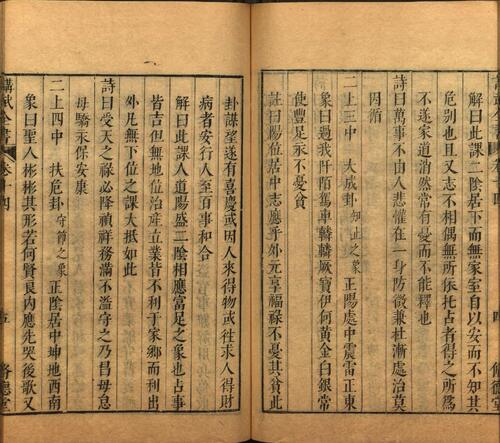 危別也且又无志不相偶無所依托占者得之所爲
不遂家道消然常有憂而不能釋也
詩曰萬事不由人悲懼在一身防微兼杜漸處治莫
因循
二上三中 大成卦知止之象 正陽處中震雷正東
象曰過我阡陌駕車轔轔厥寶伊何黃金白銀常
使豐足永不憂貧
註曰陽位居中志應乎外元享福祿不憂其貧此
卦謀望遂有喜慶或因人來得物或往求人得財
病者安行人至百事和合
解曰此課人道陽盛二陰相應富足之象也占事
皆吉但無地位治產立業皆不利于家鄉而利出
外凡無下位之課大抵如此
詩曰受天之祿必降禎祥務滿不溢守之乃昌毋怠
毋驕永保安康
二上四中 扶危卦守節之象 正陰居中坤地西南
象曰聖人彬彬其形若何賢良內應先哭後歌又
講武全書 卷十四 五